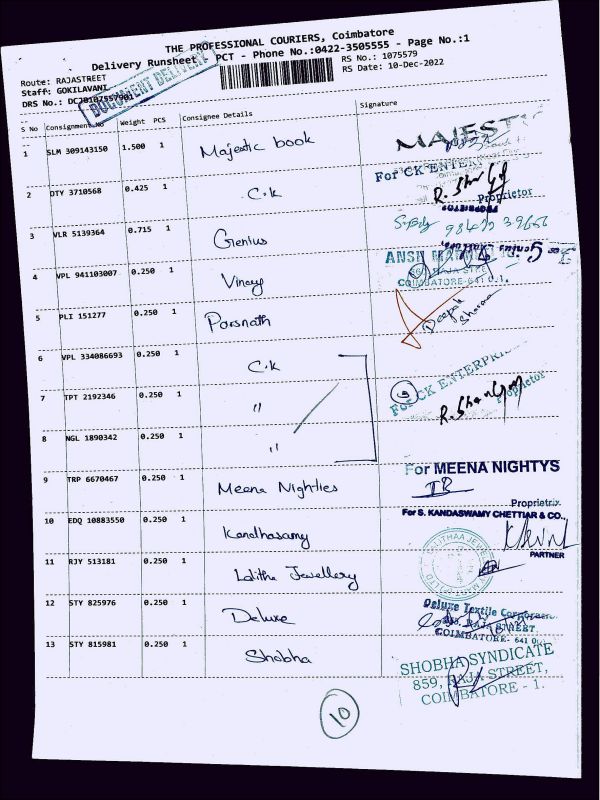 THE PROFESSIONAL COURIERS, Coimbatore
Delivery Runsheet PCT - Phone No.:0422-3505555 - Page No.:1
Route: RAJASTREET
RS No.: 1075579
Staff: GOKILAVANI
RS Date: 10-Dec-2022
DRS No.:
DOCUMENT DELIVERY
S No Consignment No Weight PCS Consignee Details Signature
1 SLM 309143150 1.500 1 Majestic book
MAJEST
For CK ENTERPR
2 DTY 3710568 0.425 1 C.K
Proprietor
PROPRIETOR
3 VLR 5139364 0.715 1 Genius
For Genius
4 VPL 941103007 0.250 1 Vinay
ANSH
COIMBATORE-641 0.1.
5 PLI 151277 0.250 1 Parsnath
Deepak Sharma
6 VPL 334086693 0.250 1 C.K
7 TPT 2192346 0.250 1 "
For CK ENTERPRI
Proprietor
8 NGL 1890342 0.250 1 "
9 TRP 6670467 0.250 1 Meena Nighties
For MEENA NIGHTYS
Proprietrix.
10 EDQ 10883550 0.250 1 Kandhasamy
For S. KANDASWAMY CHETTIAR & CO.,
PARTNER
11 RJY 513181 0.250 1 Lalitha Jewellery
LALITHAA JEWELLERY MART
12 STY 825976 0.250 1 Deluxe
Deluxe Textile
RAJA STREET
COIMBATORE - 641 0
13 STY 815981 0.250 1 Shobha
SHOBHA SYNDICATE
859, RAJA STREET,
COIMBATORE - 1.
10